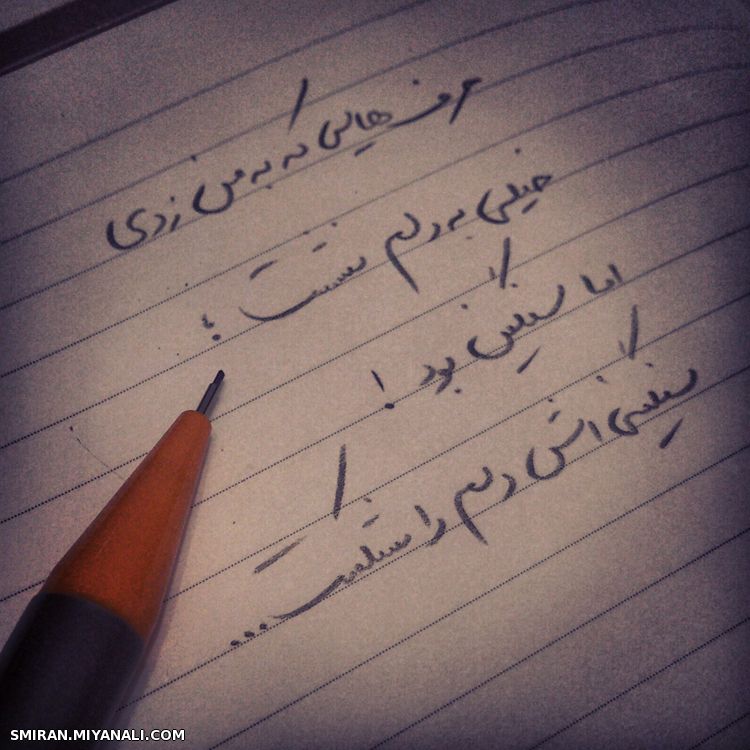 حرف هایی که به من زدی
خیلی به دلم نشست ؛
اما سنگین بود !
سنگینی اش دلم را شکست ...
SMIRAN.MIYANALI.COM